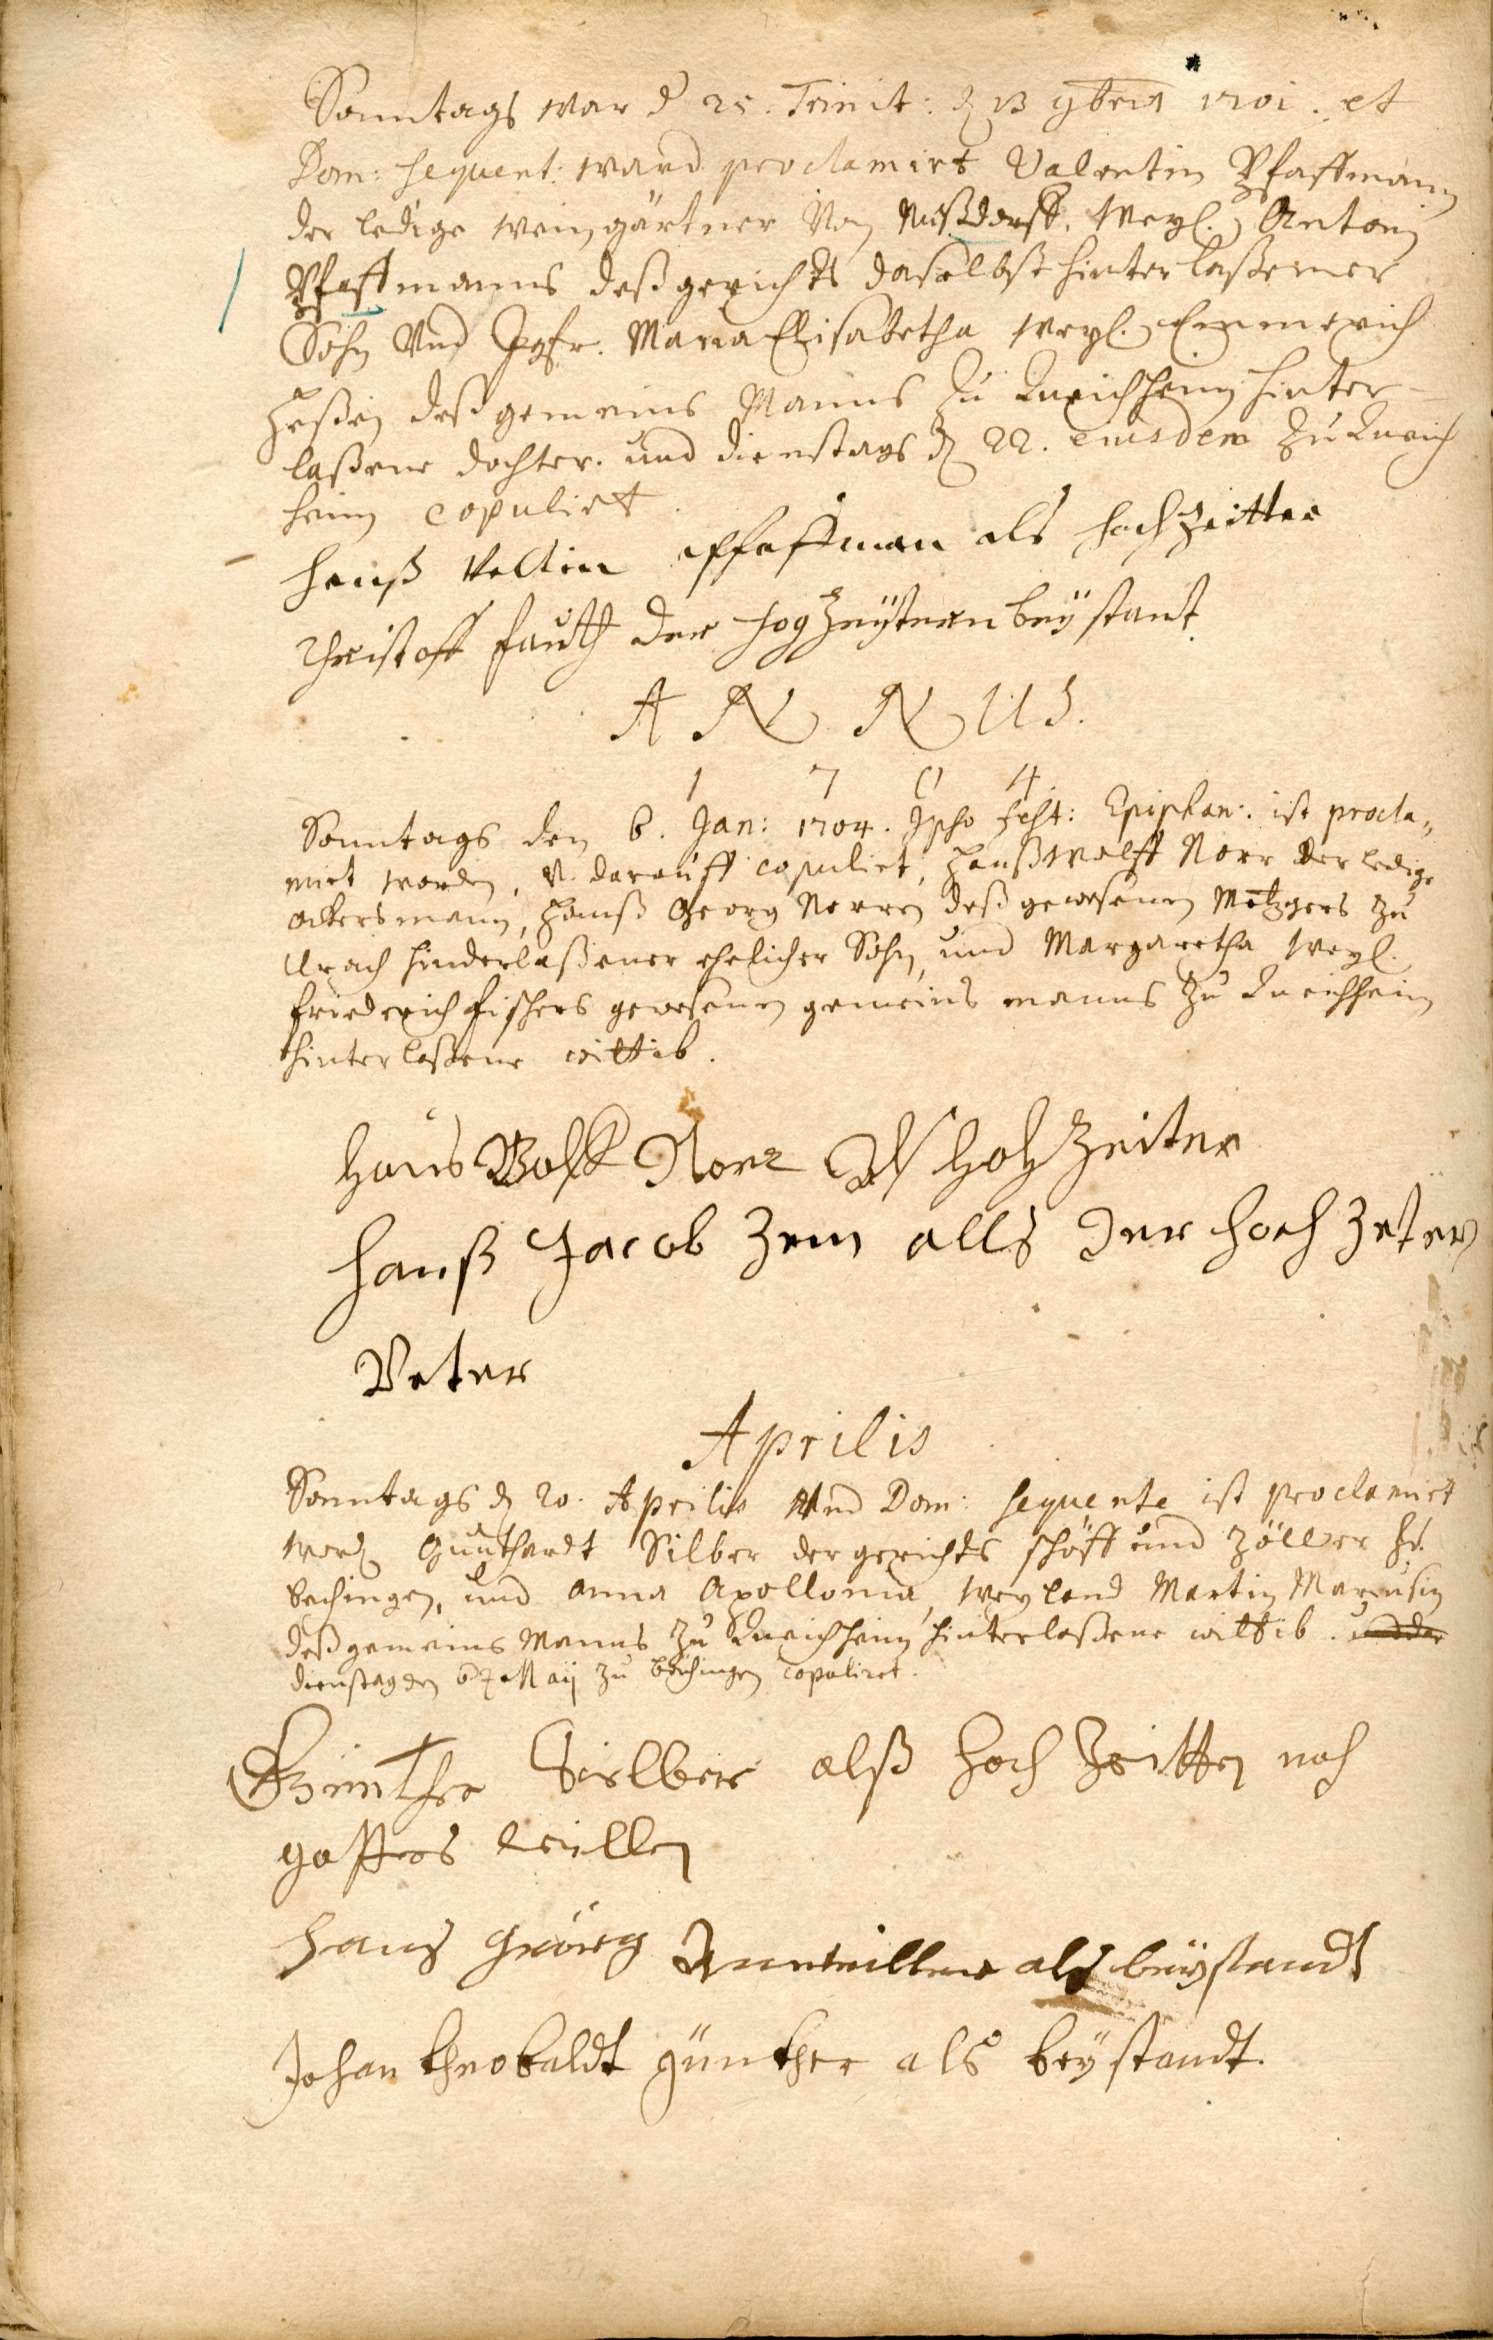 Sonntags war d 25. Trinit: d 13 9bris 1701. et
Dom: sequent: ward proclamirt Valentin Pfaffmann
der ledige weingärtner Von Nußdorff. Weyl. Antoni
Pfaffmanns deß gerichts daselbst hinterlaßener
Sohn Vnd Jgfr. Maria Elisabetha weyl. Emmerich
Heßen deß gemeins Manns zu Queichheim hinter-
laßene dochter. und dienstags d 22. eiusdem zu Queich
heim copulirt.
hanß Velltin pfaffman als hochzeitter
Christoff fauth der hogzeyteren beystant
ANNUS.
1704.
Sonntags den 6. Jan: 1704. Ipso fest: Epiphan: ist procla„
mirt worden, v. darauff copulirt, Hanß Wolff Norr der ledige
ackersmann, Hanß Georg Norren deß gewesenen Metzgers zu
Urach hinderlaßener ehelicher Sohn, und Margaretha weyl.
friederich fischers gewesenen gemeins manns zu Queichheim
hinterlaßene wittib.
Hans Wolff Norr Als Hohzeiter
hanß Jacob Zem alls der hochzeter
Veter
Aprilis
Sonntags d 20. Aprilis Und Dom: sequente ist proclamirt
word Günthardt Silber der gerichts schöff und Zöller zu
bechingen, und Anna Apollonia, weyland Martin
deß gemeins Manns zu Queichheim hinterlaßene wittib. und der
dienstag den 6 Maij zu böchingen copuliret.
Günther Sielber alß hochzeitter nach
gottes willen
Hans Geörg als beystandt
Johan theobaldt günther als beystandt.